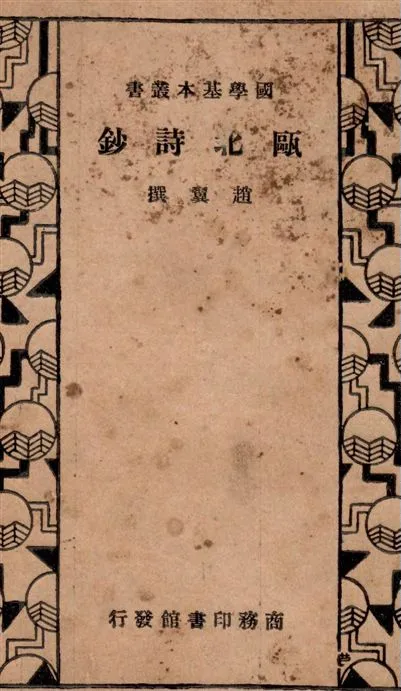 國學基本叢書
甌北詩鈔
趙翼撰
商務印書館發行